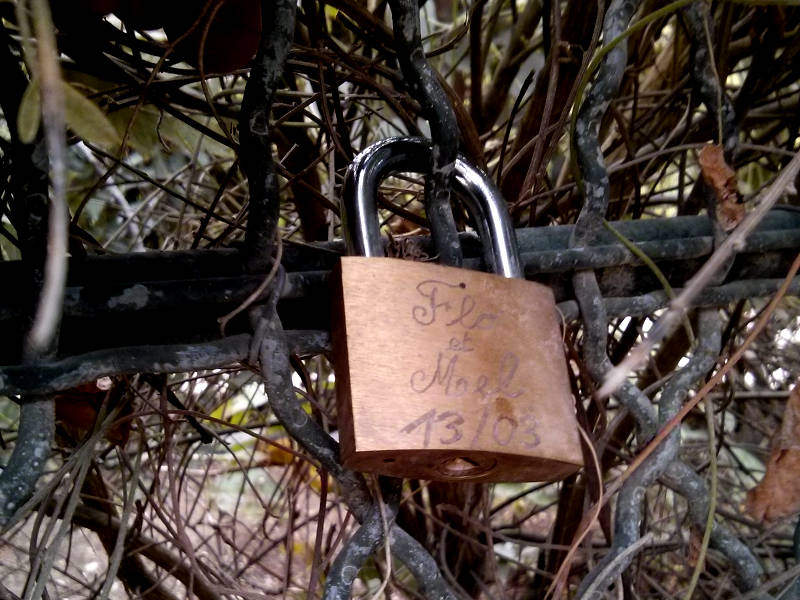 Flo
et
Mael
13/03